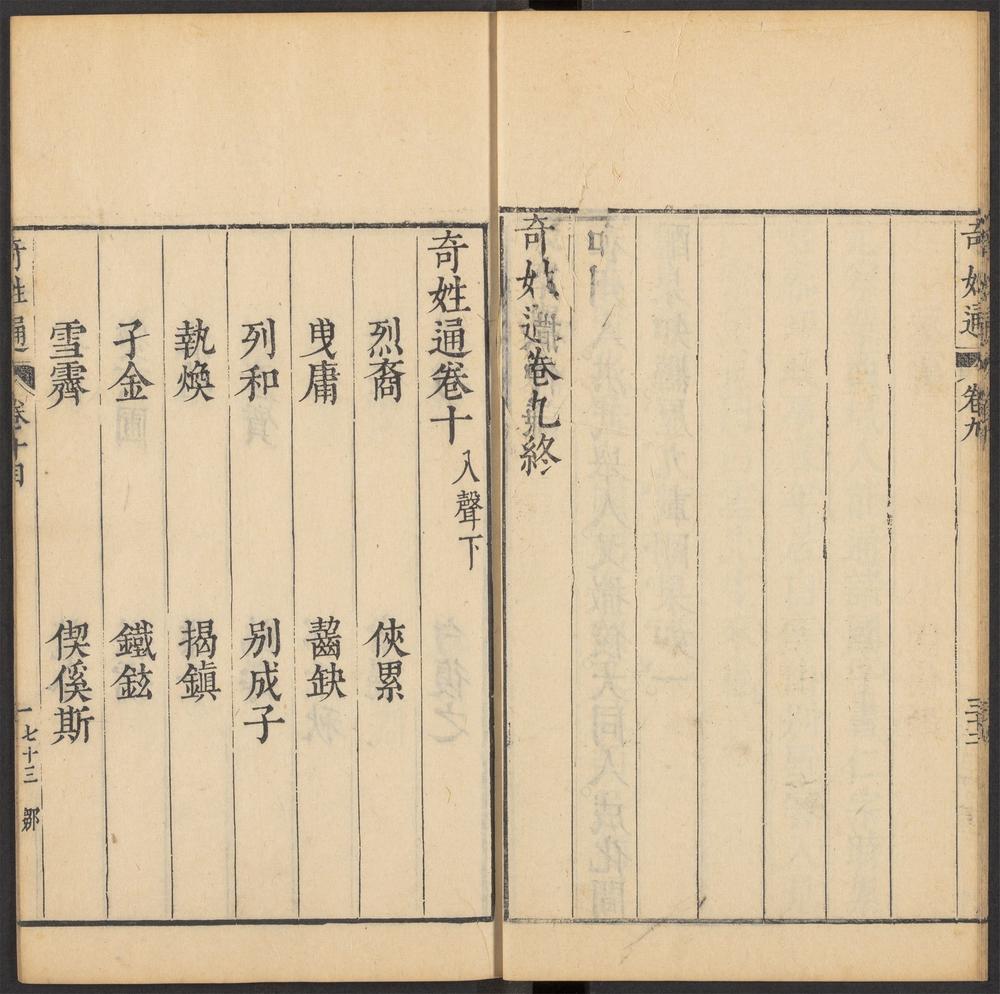 奇姓通
卷九
三十二
奇姓通卷九終
奇姓通卷十 入聲下
烈裔 俠累
曳庸 齧缺
列和 别成子
執煥 揭鎮
子金 鐵鉉
雪霽 偰傒斯
奇姓通
卷十目
一
七十三 鄒